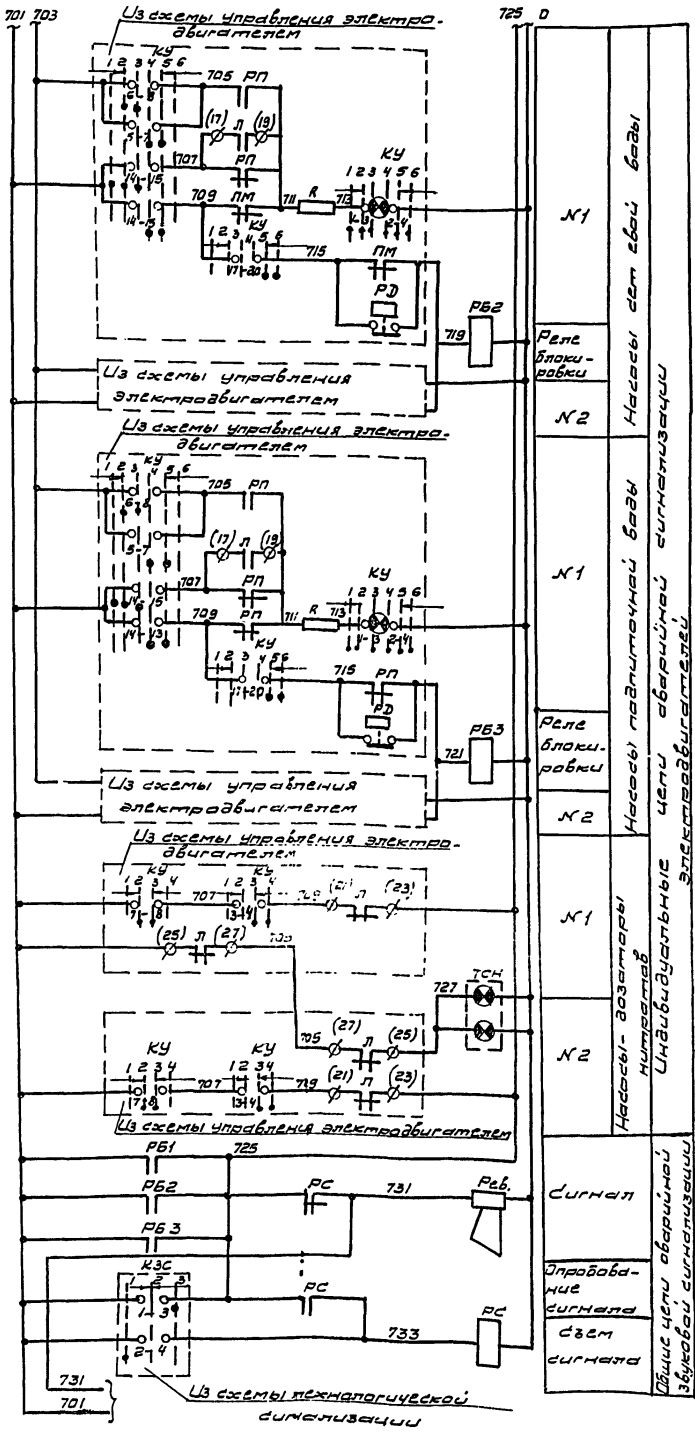 701 703 725 0
Из схемы управления электро-
двигателем
КУ
1 2 3 4 5 6
6-8
705 РП
5-7
(17) Л (19)
707 РП
14-15
709 ПМ 711 R 713
14-15
КУ
1 2 3 4 5 6
1-3 2-4
КУ
1 2 3 4 5 6
17-20
715 ПМ
РД
719 РБ2
Из схемы управления
электродвигателем
Из схемы управления электро-
двигателем
КУ
1 2 3 4 5 6
6-8
705 РП
5-7
(17) Л (19)
707 РП
14-15
709 РП 711 R 713
14-13
КУ
1 2 3 4 5 6
1-3 2-4
КУ
1 2 3 4 5 6
17-20
715 РП
РД
721 РБ3
Из схемы управления
электродвигателем
Из схемы управления электро-
двигателем
КУ КУ
1 2 3 4 707 1 2 3 4 (21) Л (23)
7-8 3-4
(25) Л (27)
727 ТСН
705 (27) Л (25)
КУ КУ
1 2 3 4 707 1 2 3 4 (21) Л (23)
7-8 3-4
Из схемы управления электродвигателем
РБ1 725
РБ2 РС 731 Рев.
РБ3
КЗС
1 2 3
1-3 РС
2-4 733 РС
731
701
Из схемы технологической
сигнализации
N1
Реле
блоки-
ровки
N2
Насосы сетевой воды
N1
Реле
блоки-
ровки
N2
Насосы подпиточной воды
N1
N2
Насосы-дозаторы
нитратов
Индивидуальные цепи аварийной сигнализации
электродвигателей
Сигнал
Опробова-
ние
сигнала
Съем
сигнала
Общие цепи аварийной
звуковой сигнализации